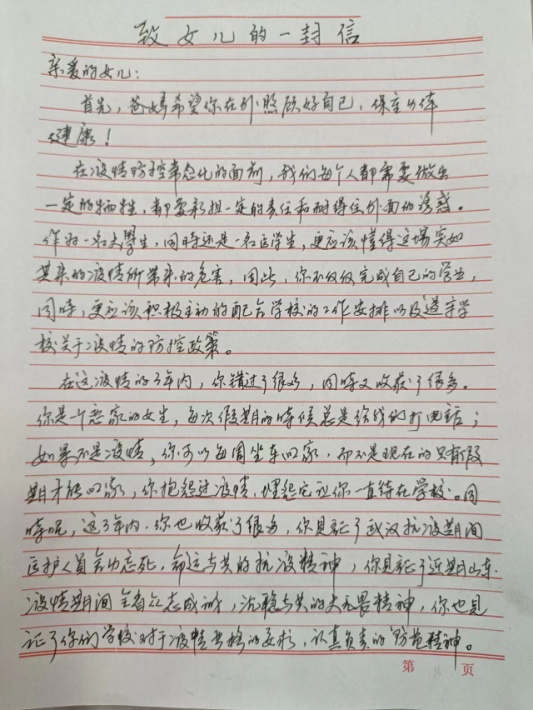 致女儿的一封信
亲爱的女儿:
首先,爸妈希望你在外照顾好自己,保重身体
健康!
在疫情防控常态化的面前,我们每个人都需要做出
一定的牺牲,都要承担一定的责任和耐得住外面的诱惑。
作为一名大学生,同时还是一名医学生,更应该懂得这场突如
其来的疫情所带来的危害,因此,你不仅仅完成自己的学业,
同时,更应该积极主动的配合学校的工作安排以及遵守学
校关于疫情的防控政策。
在这疫情的3年内,你错过了很多,同时又收获了很多。
你是一个恋家的女生,每次假期的时候总是给我们打电话;
如果不是疫情,你可以每周坐车回家,而不是现在的只有假
期才能回家,你抱怨过疫情,埋怨它让你一直待在学校。同
时呢,这3年内,你也收获了很多,你见证了武汉抗疫期间
医护人员舍生忘死,命运与共的抗疫精神,你见证了近期山东
疫情期间全省众志成城,沉稳与共的大无畏精神,你也见
证了你们学校对于疫情严格的要求,认真负责的防范精神。
第 页